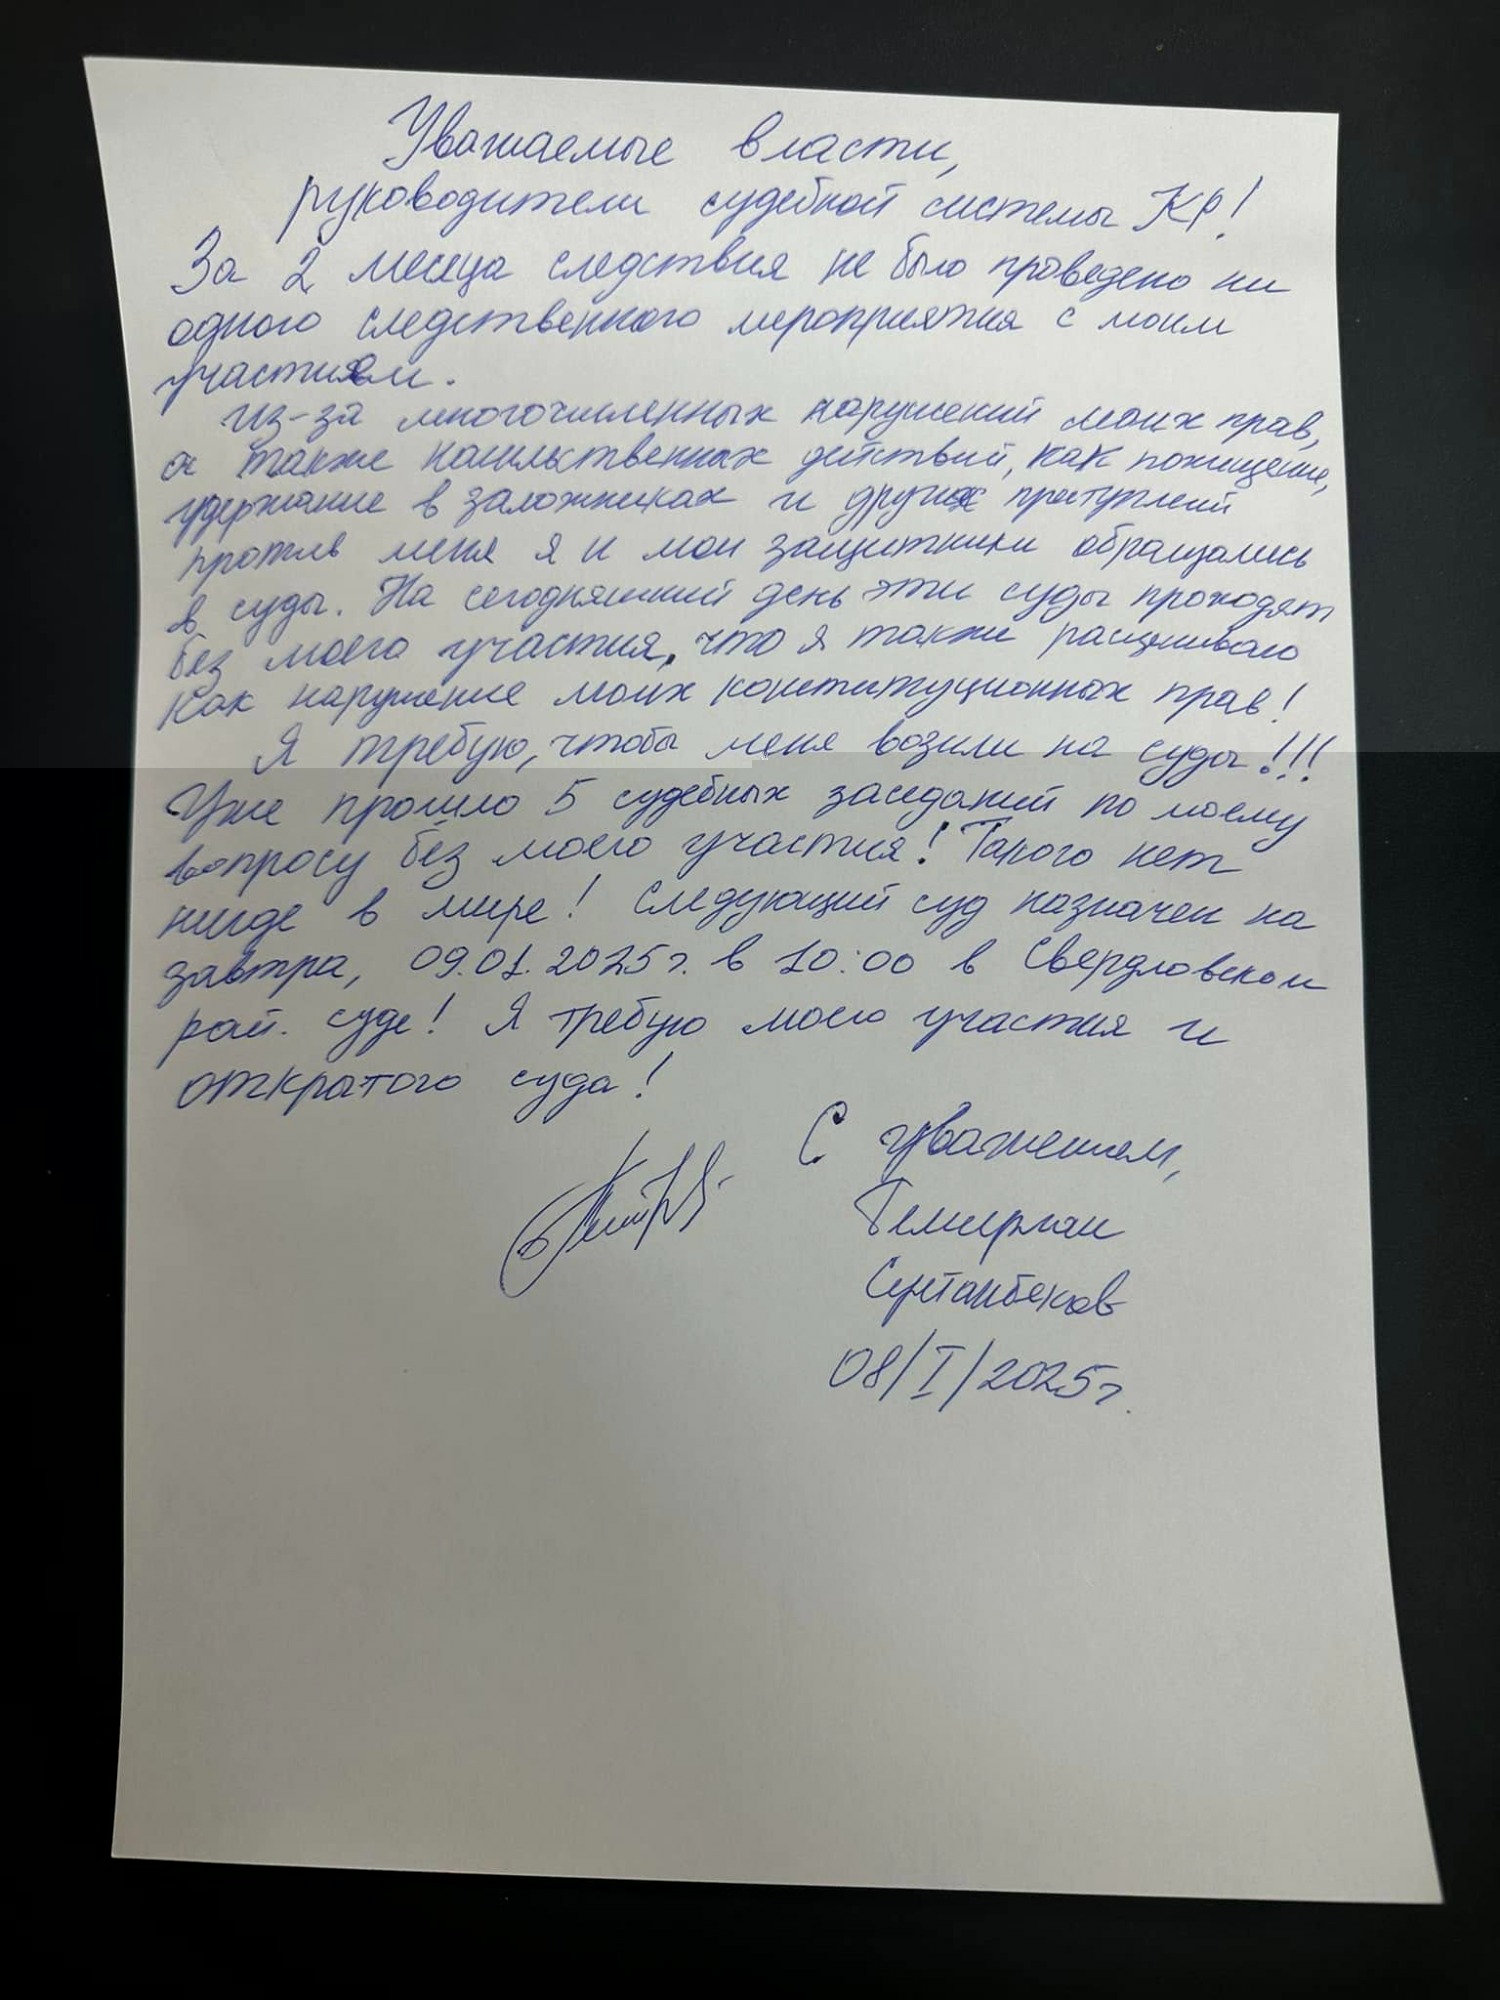 Уважаемые власти,
руководители судебной системы КР!
За 2 месяца следствия не было проведено ни
одного следственного мероприятия с моим
участием.
Из-за многочисленных нарушений моих прав,
а также насильственных действий, как похищение,
удержание в заложниках и других преступлений
против меня я и мои защитники обращались
в суды. На сегодняшний день эти суды проходят
без моего участия, что я также расцениваю
как нарушение моих конституционных прав!
Я требую, чтобы меня возили на суды!!!
Уже прошло 5 судебных заседаний по моему
вопросу без моего участия! Такого нет
нигде в мире! Следующий суд назначен на
завтра, 09.01.2025г. в 10:00 в Свердловском
рай. суде! Я требую моего участия и
открытого суда!
С уважением,
Темирлан
Султанбеков
08/I/2025г.